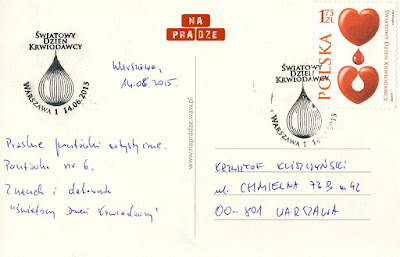 ŚWIATOWY
DZIEŃ
KRWIODAWCY
WARSZAWA 1 14.06.2015
NA
PRADZE
Warszawa,
14.06.2015.
ŚWIATOWY
DZIEŃ
KRWIODAWCY
WARSZAWA 1 14.06.2015
1,75
ZŁ
POLSKA
ŚWIATOWY DZIEŃ KRWIODAWCY
Praskie pocztówki artystyczne.
Pocztówka nr 6.
Znaczek i datownik
"Światowy Dzień Krwiodawcy"
www.napradze.waw.pl
KRZYSZTOF
ul. CHMIELNA 73B m 42
00-801 WARSZAWA